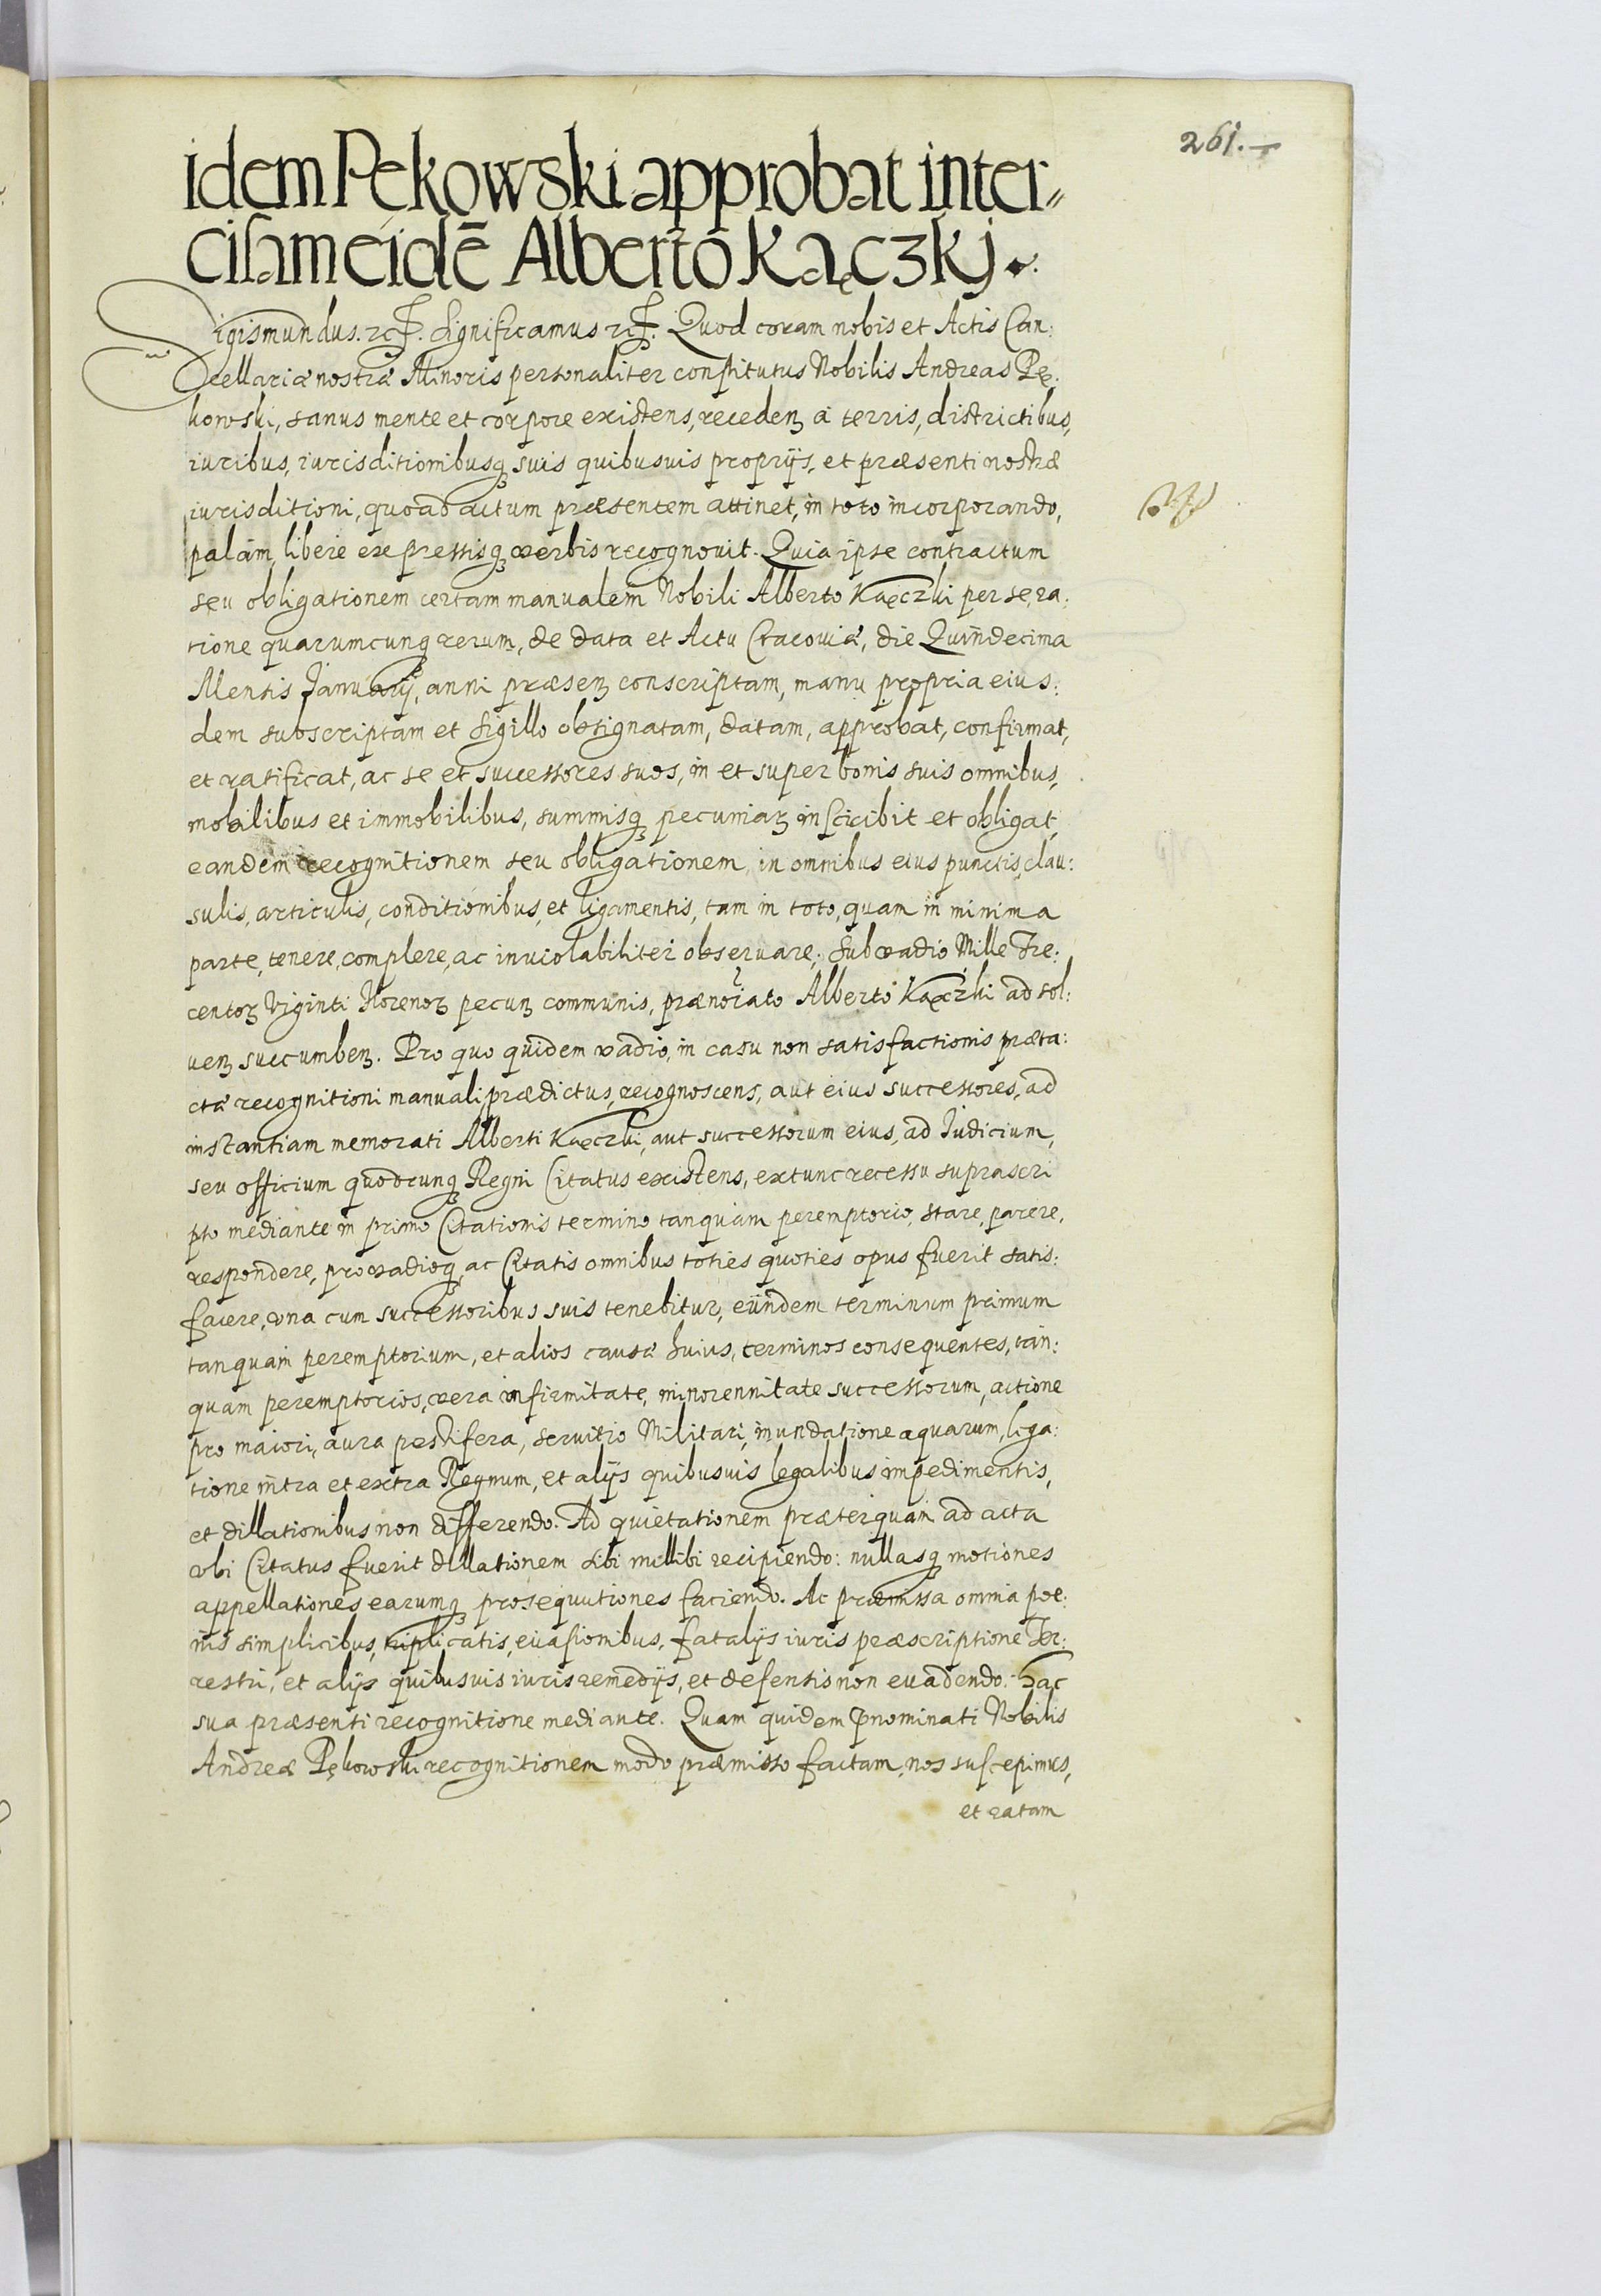 261.
idem Pękowski approbat inter„
cisam eidē Alberto Kączkj
Sigismundus. etc. Significamus etc. Quod coram nobis et Actis Can:
cellariæ nostræ Minoris personaliter constitutus Nobilis Andreas Pę:
kowski, sanus mente et corpore existens, recedenꝫ à terris, districtibus,
iuribus, iurisditionibusqꝫ suis quibusuis proprijs, et præsenti nostræ
iurisditioni, quoad actum præsentem attinet, in toto incorporando,
palàm, libere expressisqꝫ verbis recognouit. Quia ipse contractum
seu obligationem certam manualem Nobili Alberto Kączki per se, ra:
tione quarumcunqꝫ rerum, de data et Actu Cracouiæ, die Quindecima
Mensis Januarij, anni præsenꝫ conscriptam, manu propria eius:
dem subscriptam et sigillo obsignatam, datam, approbat, confirmat,
et ratificat, ac se et successores suos, in et super bonis suis omnibus,
mobilibus et immobilibus, summisqꝫ pecuniaꝫ inscribit et obligat,
eandem recognitionem seu obligationem, in omnibus eius punctis, clau:
sulis, articulis, conditionibus, et ligamentis, tam in toto, quam in minima
parte, tenere, complere, ac inuiolabiliter obseruare, sub vadio Mille Tre:
centoꝫ Viginti Florenoꝫ pecunꝫ communis, prænotato Alberto Kączki ad sol:
uenꝫ succumbenꝫ. Pro quo quidem vadio, in casu non satisfactionis præta:
ctæ recognitioni manuali prædictus, recognoscens, aut eius successores, ad
instantiam memorati Alberti Kączki, aut successorum eius, ad Judicium,
seu officium quodcunqꝫ Regni Citatus existens, extunc recessu suprascri
pto mediante in primo Citationis termino tanquam peremptorio, stare, parere,
respondere, pro vadioqꝫ, ac Citatis omnibus toties quoties opus fuerit satis:
facere, vna cum successoribus suis tenebitur, eundem terminum primum
tanquam peremptorium, et alios causæ huius, terminos consequentes, tan:
quam peremptorios, vera infirmitate, minorennitate successorum, actione
pro maiori, aura pestifera, seruitio Militari, inundatione aquarum, lega:
tione intra et extra Regnum, et alijs quibusuis legalibus impedimentis,
et dillationibus non differendo. Ad quietationem præterquam ad acta
vbi Citatus fuerit dillationem sibi nullibi recipiendo: nullasqꝫ motiones
appellationes earumqꝫ prosequutiones faciendo. Ac præmissa omnia pœ:
nis simplicibus, triplicatis, euasionibus, fatalijs iuris præscriptione Ter:
restri, et alijs quibusuis iuris remedijs, et defensis non euadendo. hac
sua præsenti recognitione mediante. Quam quidem p̄nominati Nobilis
Andreæ Pękowski recognitionem modo præmisso factam, nos suscepimus,
et ratam